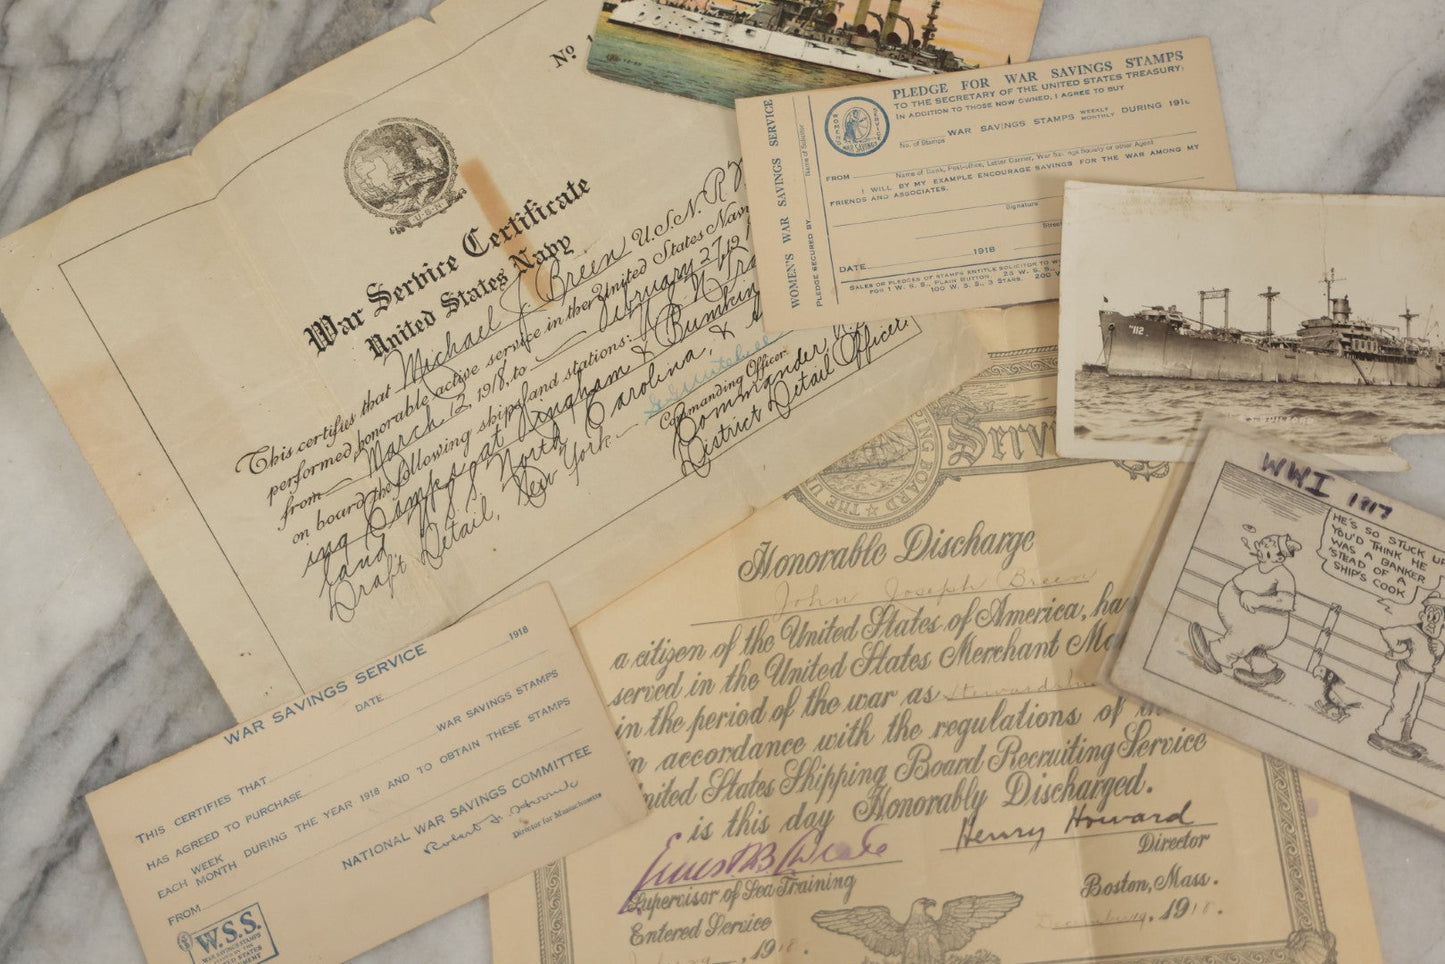 Nº 1
U.S.N.
War Service Certificate
United States Navy
This certifies that Michael J. Breen U.S.N.R.
performed honorable active service in the United States Navy
from March 12, 1918, to February 27,
on board the following ships and stations:
Camps at Hingham & Bumkin
North Carolina, &
Draft Detail, New York
Commanding Officer
Commander,
District Detail Officer.
WOMEN'S WAR SAVINGS SERVICE
PLEDGE SECURED BY
Name of Solicitor
WOMEN'S
WAR SAVINGS
SERVICE
PLEDGE FOR WAR SAVINGS STAMPS
TO THE SECRETARY OF THE UNITED STATES TREASURY:
IN ADDITION TO THOSE NOW OWNED, I AGREE TO BUY
WAR SAVINGS STAMPS WEEKLY MONTHLY DURING 191
No. of Stamps
FROM
Name of Bank, Post-office, Letter Carrier, War Savings Society or other Agent
I WILL BY MY EXAMPLE ENCOURAGE SAVINGS FOR THE WAR AMONG MY
FRIENDS AND ASSOCIATES.
Signature
Street
DATE 1918
SALES OR PLEDGES OF STAMPS ENTITLE SOLICITOR TO W
FOR 1 W. S. S., PLAIN BUTTON. 25 W. S. S.
100 W. S. S., 3 STARS. 200
112
WWI 1917
HE'S SO STUCK UP
YOU'D THINK HE
WAS A BANKER
'STEAD OF A
SHIP'S COOK
BOARD ★ THE U
Servi
Honorable Discharge
John Joseph Breen
a citizen of the United States of America, ha
served in the United States Merchant Ma
in the period of the war as Steward
in accordance with the regulations of
United States Shipping Board Recruiting Service
is this day Honorably Discharged.
Henry Howard
Supervisor of Sea Training
Director
Entered Service
Boston, Mass.
1918.
1918.
WAR SAVINGS SERVICE
DATE 1918
THIS CERTIFIES THAT
HAS AGREED TO PURCHASE WAR SAVINGS STAMPS
EACH WEEK MONTH DURING THE YEAR 1918 AND TO OBTAIN THESE STAMPS
FROM
NATIONAL WAR SAVINGS COMMITTEE
Director for Massachusetts
W.S.S.
WAR SAVINGS STAMPS
ISSUED BY THE